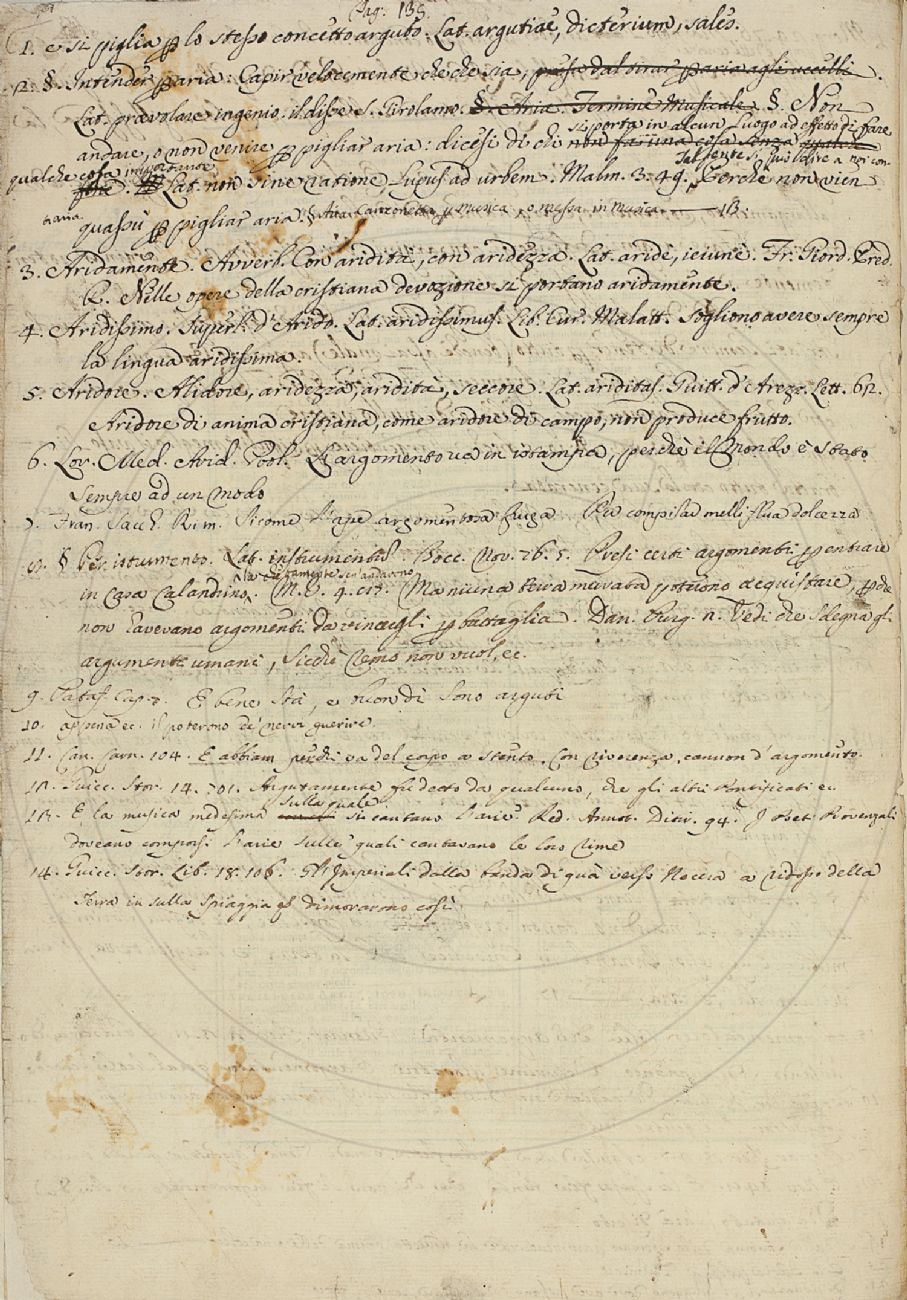 Pag. 135.
1. e si piglia p lo stesso concetto arguto. Lat. argutiae, dicterium, sales.
2. §. Intender p aria: Capir velocemente che che sia, presa dal tirar p aria agli uccelli.
Lat. praevolare ingenio. il disse S. Girolamo. §. Aria. Termine Musicale. §. Non
andare, o non venire p pigliar aria: dicesi di chi non fa una cosa senza qualche
si porta in alcun luogo ad effetto di fare
qualche cosa importante
Lat. non sine ratione, Lupus ad urbem. Malm. 3. 49. Perchè non vien
quassù p pigliar aria. § Aria Canzonetta p musica, o messa in musica — 13.
3. Aridamente. Avverb. Con aridità, con aridezza. Lat. aride, ieiune. Fr. Giord. Pred.
R. Nille opere della cristiana devozione si portano aridamente.
4. Aridissimo. Superl. d'Arido. Lat. aridissimus. Lib. Cur. Malatt. Sogliono avere sempre
la lingua aridissima.
5. Aridore. Alidore, aridezza, aridità, seccore. Lat. ariditas. Guitt. d'Arezz. Lett. 62.
Aridore di anima cristiana, come aridore di campo, non produce frutto.
6. Lor. Med. Arid. Prol. L'argomento va in istampa, perchè il Mondo è stato
sempre ad un modo
7. Fran. Sacch. Rim. Sicome l'ape argomentosa fuga Per compilar melliflua dolcezza
8. § Per istrumento. Lat. instrumentum. Bocc. Nov. 26. 5. Presi certi argomenti p entrare
in casa Calandrino M. V. 9. c. Ma niuna terra murata potieno acquistare, p che
non l'avevano argomenti da vincergli p battaglia. Dan. Purg. 2. Vedi che sdegna gli
argomenti umani, Sicchè remo non vuol, ec.
9. Pataf. Cap. E bene stà, e buon dì sono arguti
10. appena ec. il poterono de' nervi guerire
11. Can. Carn. 104. E abbiam perchè va del capo a stento, Con riverenza, cannon d'argomento.
12. Guicc. Stor. 14. 701. Argutamente fu detto da qualcuno, che gli altri Pontificati ec.
13. E la musica medesima sulla quale si cantano l'arie. Red. Annot. Ditir. 94. I Poeti Provenzali
doveano comporsi l'arie sulle quali cantavano le loro rime
14. Guicc. Stor. Lib. 18. 106. Gl'Imperiali dalla banda di quà verso Nocera a ridosso della
Terra in sulla spiaggia dimorarono così